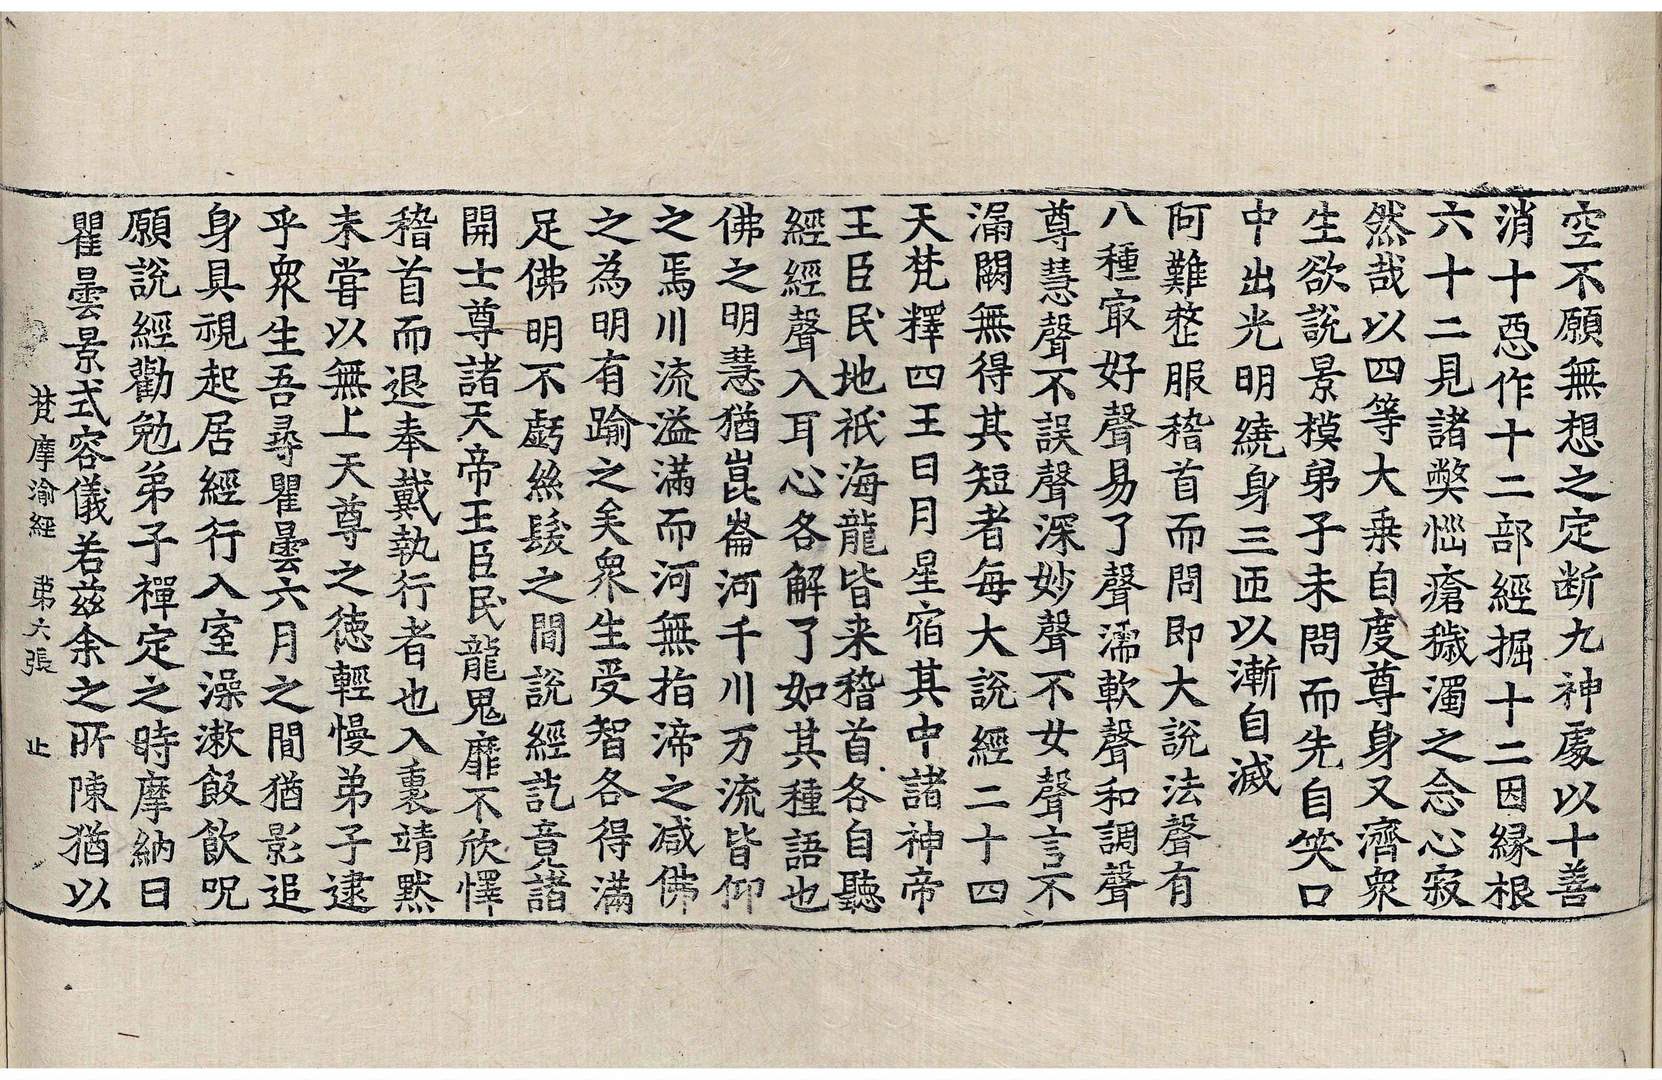 空不願無想之定断九神處以十善
消十惡作十二部經掘十二因縁根
六十二見諸弊惱瘡穢濁之念心寂
然哉以四等大乗自度尊身又濟衆
生欲說景模弟子未問而先自笑口
中出光明繞身三匝以漸自滅
阿難整服稽首而問即大說法聲有
八種冣好聲易了聲濡軟聲和調聲
尊慧聲不誤聲深妙聲不女聲言不
漏闕無得其短者每大說經二十四
天梵釋四王日月星宿其中諸神帝
王臣民地祇海龍皆来稽首各自聽
經經聲入耳心各解了如其種語也
佛之明慧猶崑崙河千川万流皆仰
之焉川流溢滿而河無指渧之减佛
之為明有踰之矣衆生受智各得滿
足佛明不虧絲髮之間說經訖竟諸
開士尊諸天帝王臣民龍鬼靡不欣懌
稽首而退奉戴執行者也入裏靖黙
未甞以無上天尊之徳輕慢弟子逮
乎衆生吾尋瞿曇六月之間猶影追
身具視起居經行入室澡漱飯飲呪
願說經勸勉弟子禪定之時摩納曰
瞿曇景式容儀若兹余之所陳猶以
梵摩渝經 苐六張 止